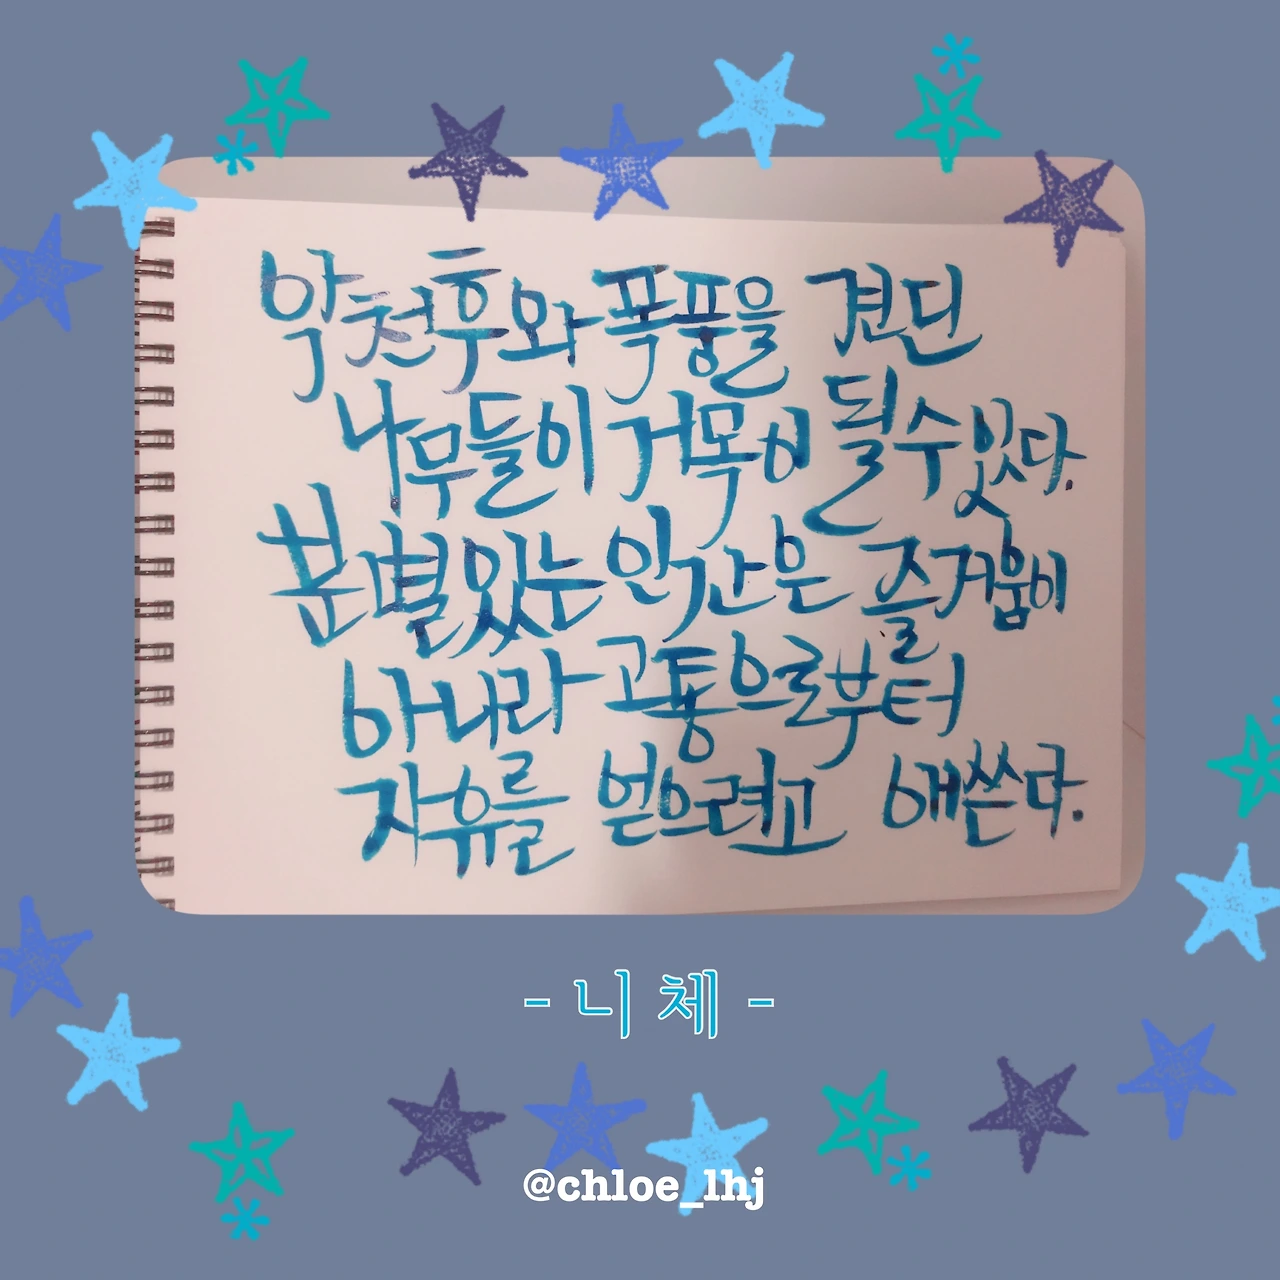 악천후와 폭풍을 견딘
나무들이 거목이 될수있다.
분별있는 인간은 즐거움이
아니라 고통으로부터
자유를 얻으려고 애쓴다.
- 니체 -
@chloe_lhj